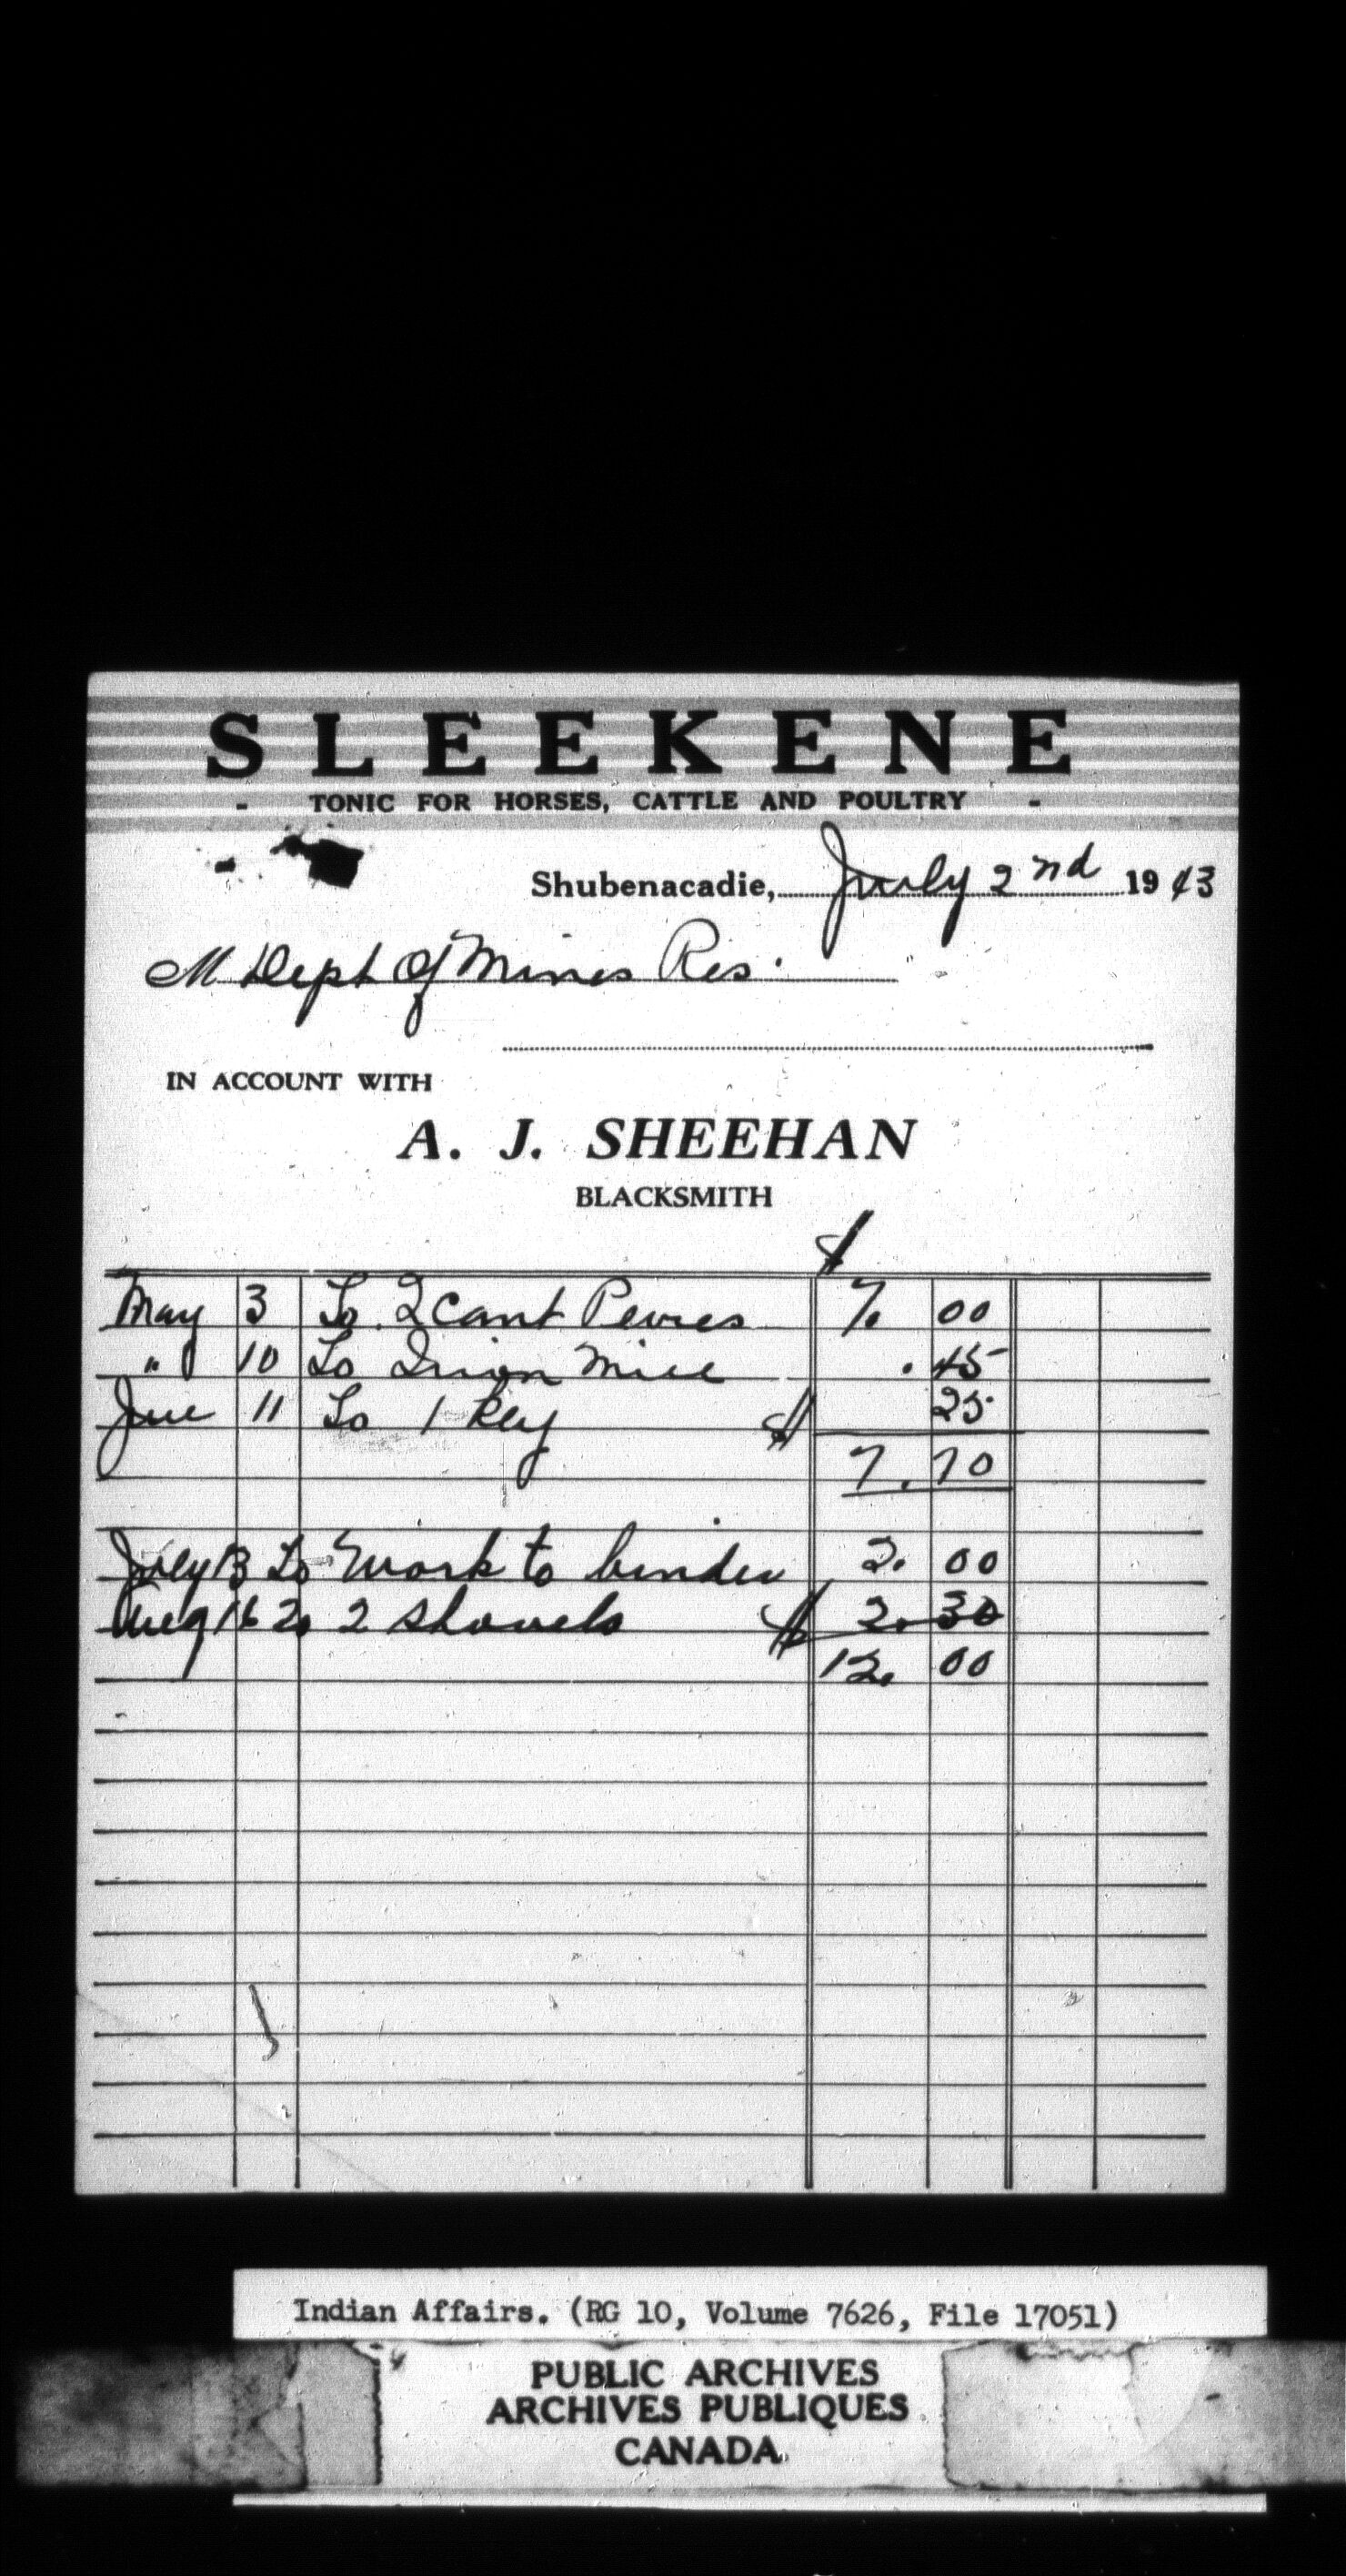 SLEEKENE
- TONIC FOR HORSES, CATTLE AND POULTRY -
Shubenacadie, July 2nd 1943
M Dept Of Mines Res.
IN ACCOUNT WITH
A. J. SHEEHAN
BLACKSMITH
$
May 3 To 2 Cant Pevies 7. 00
" 10 To Iron .45
June 11 To 1 Key $ 25
7.70
July 13 To Work to binder 2. 00
Aug 16 To 2 Shovels $ 2.30
12. 00
Indian Affairs. (RG 10, Volume 7626, File 17051)
PUBLIC ARCHIVES
ARCHIVES PUBLIQUES
CANADA